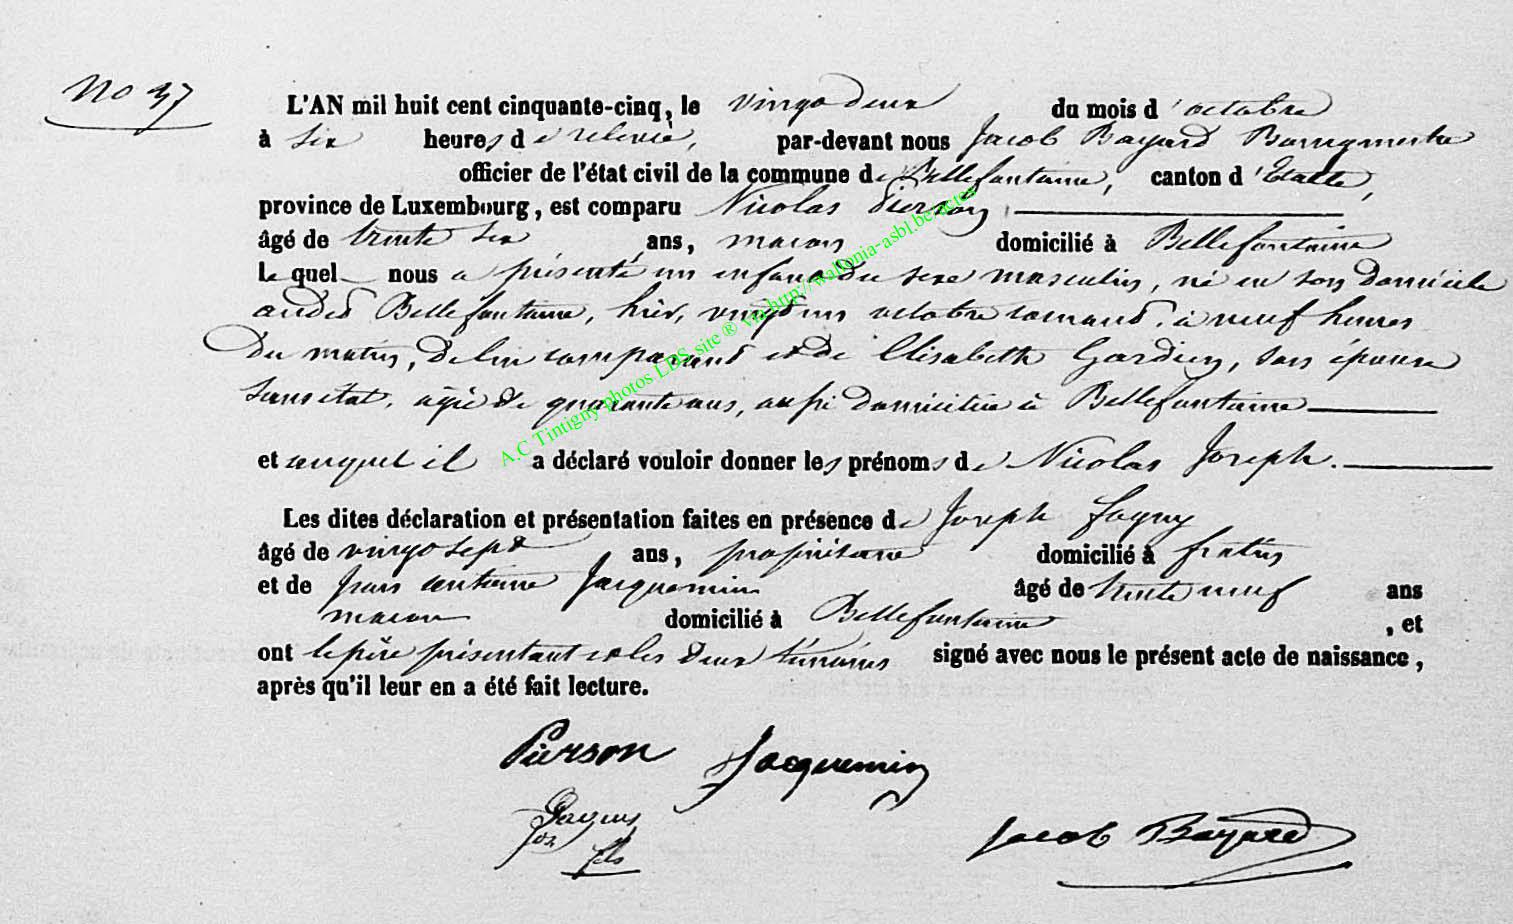 No 37
L'AN mil huit cent cinquante-cinq, le vingt deux du mois d'octobre
à six heures de relevée, par-devant nous Jacob Bayard Bourgmestre
officier de l'état civil de la commune de Bellefontaine, canton d'Etalle,
province de Luxembourg, est comparu Nicolas Pierson
âgé de trente six ans, maçon domicilié à Bellefontaine
le quel nous a présenté un enfant du sexe masculin, né en son domicile
audit Bellefontaine, hier, vingt un octobre courant, à neuf heures
du matin, de lui comparant et de Elisabeth Gardien, son épouse
sans état, agée de quarante ans, aussi domiciliée à Bellefontaine
et auquel il a déclaré vouloir donner les prénoms de Nicolas Joseph.
Les dites déclaration et présentation faites en présence de Joseph Fagny
âgé de vingt sept ans, propriétaire domicilié à fratin
et de Jean antoine Jacquemin âgé de trente neuf ans
maçon domicilié à Bellefontaine, et
ont le père présentant et les deux témoins signé avec nous le présent acte de naissance,
après qu'il leur en a été fait lecture.
Pierson Jacquemin
Jos fils
Jacob Bayard
A.C Tintigny-photos LDS site ® via http://wallonia-asbl.be/actes